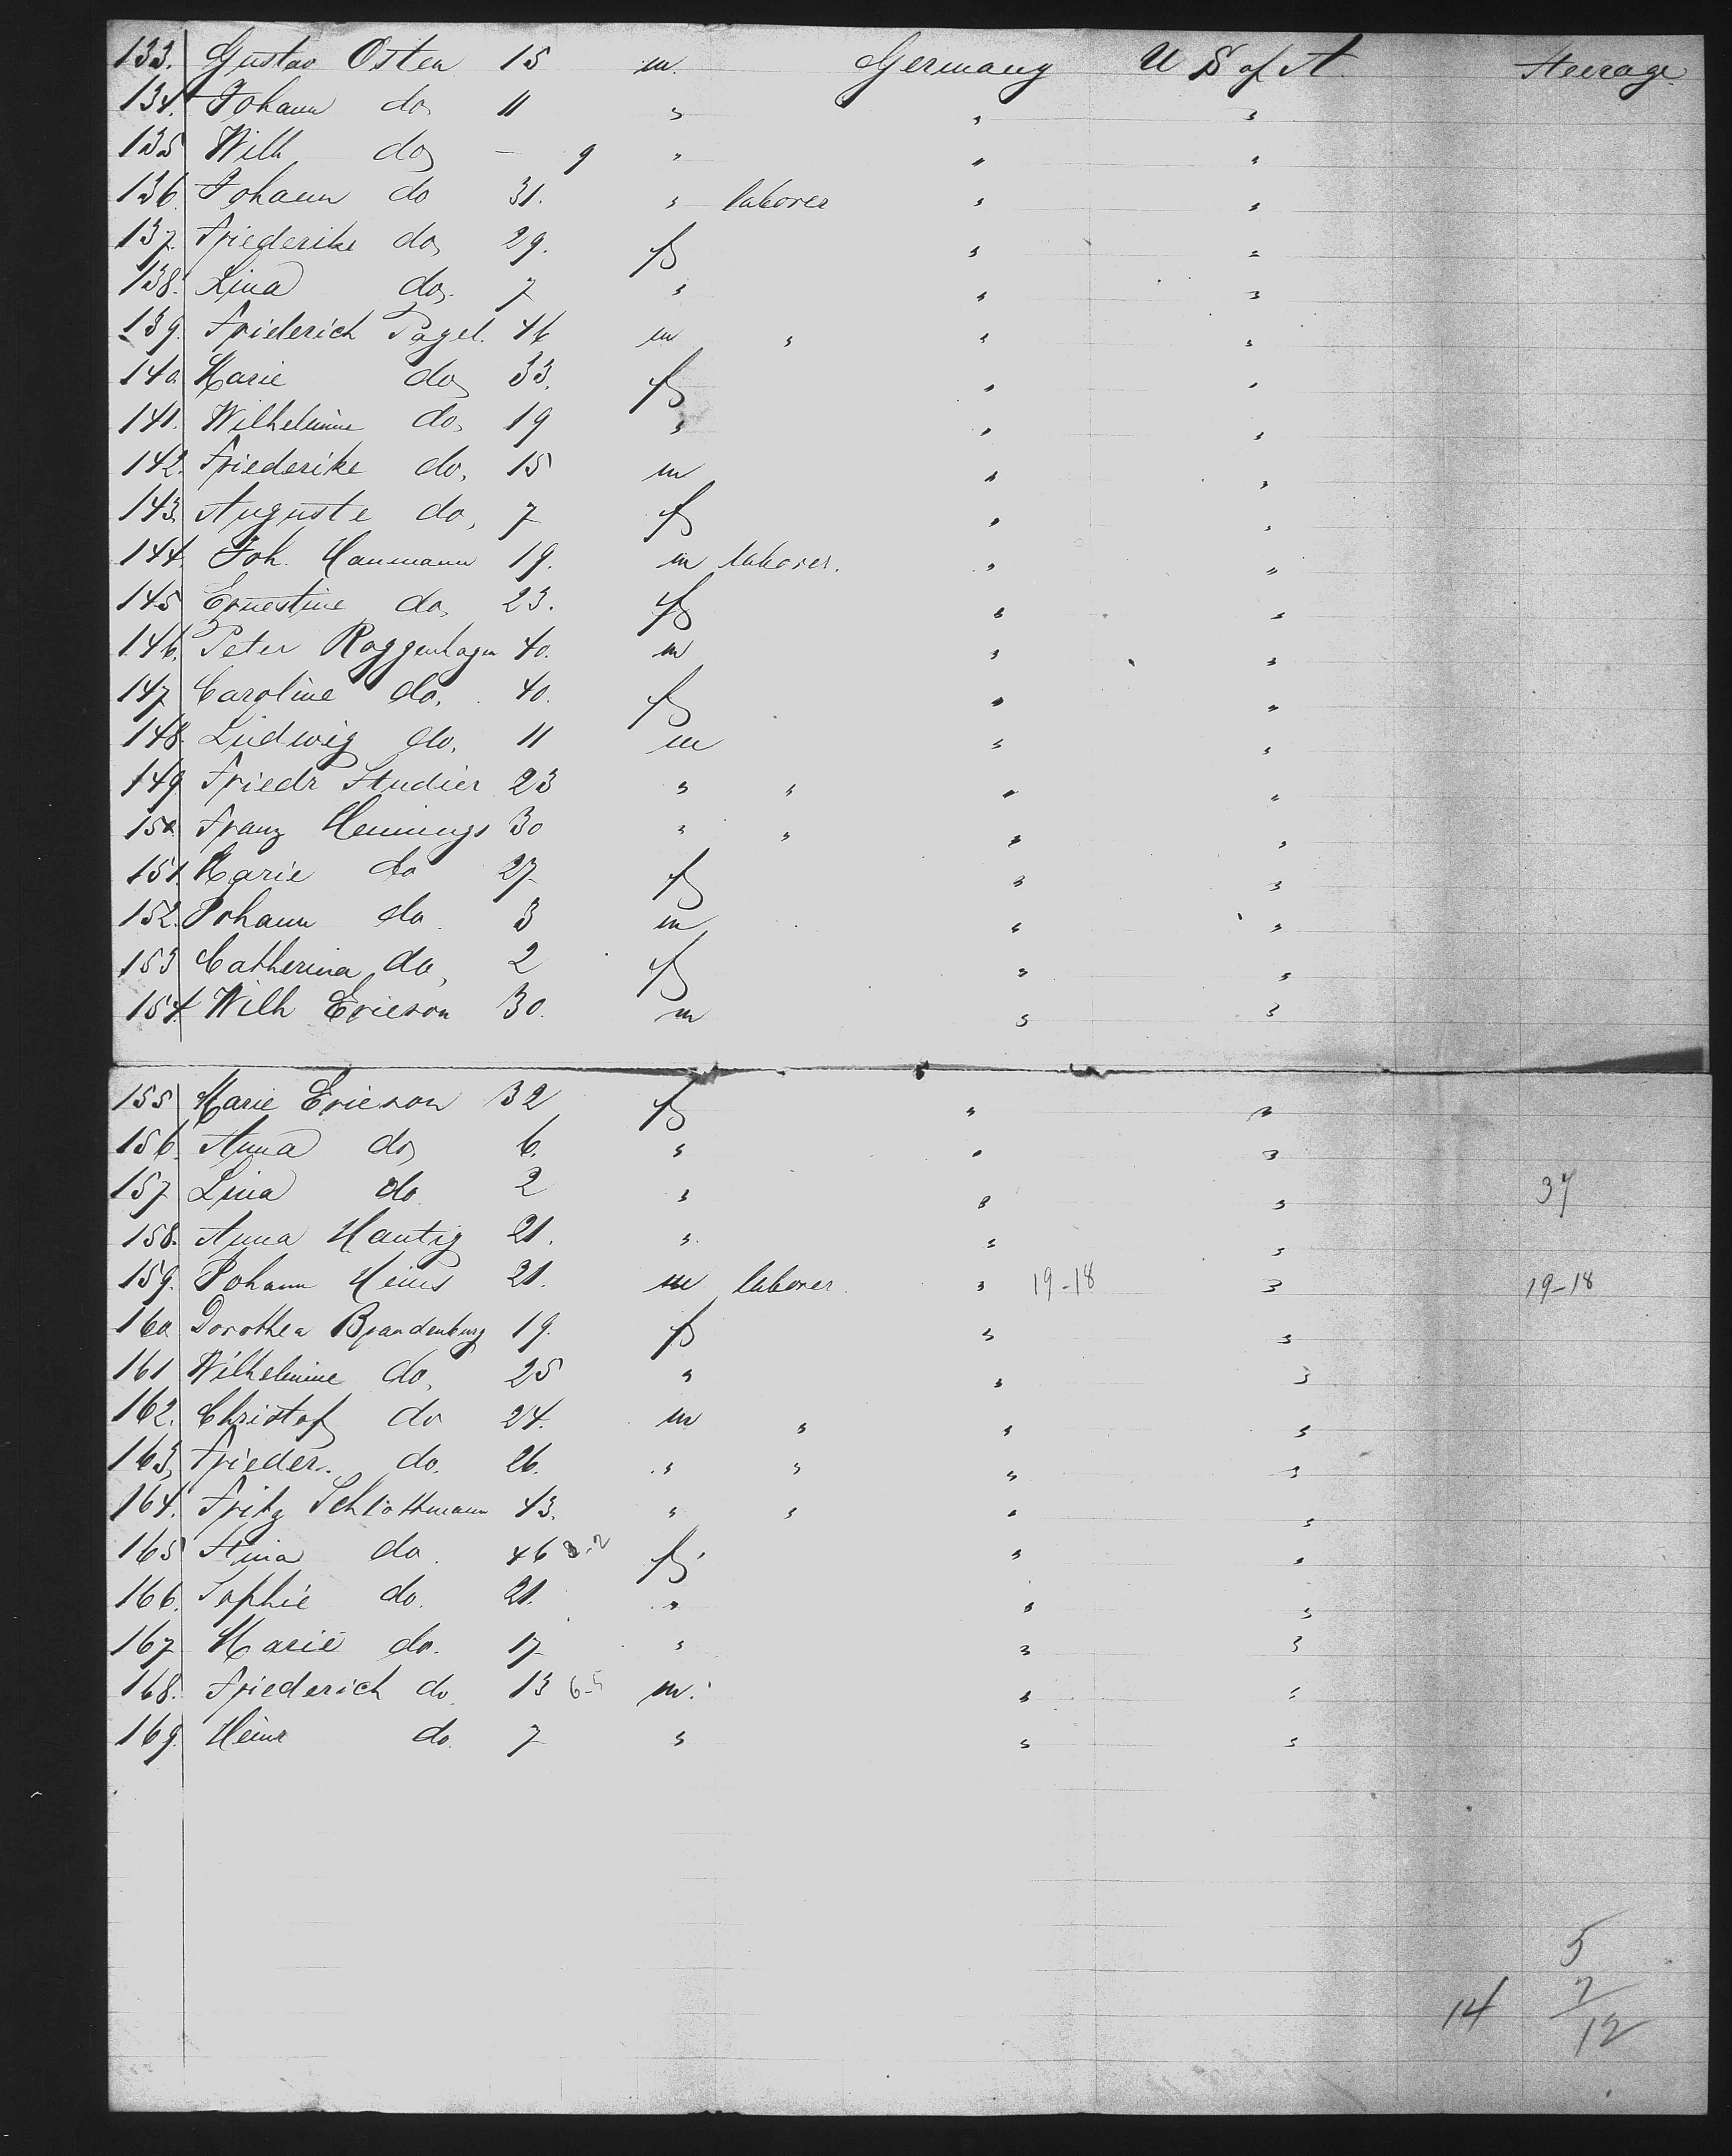 133. Gustav Osten 15 m. Germany U S of A. Steerage
134. Johann do 11 " " "
135 Wilh do — 9 " " "
136. Johann do 31. " laborer " "
137. Friederike do 29. f " "
138. Lina do. 7 " " "
139. Friederich Pagel. 46 m " " "
140 Marie do 33. f " "
141. Wilhelmine do 19 " " "
142. Friederike do. 15 m " "
143. Auguste do, 7 f " "
144. Joh. Hanmann 19. m laborer. " "
145 Ernestine do 23. f " "
146. Peter Roggenhagen 40. m " "
147 Caroline do. 40. f " "
148. Ludwig do, 11 m " "
149 Friedr Studier 23 " " " "
150 Franz Hennings 30 " " " "
151. Marie do 27 f " "
152. Johann do. 3 m " "
153 Catherina do, 2 f " "
154. Wilh Ericson 30. m " "
155 Marie Ericson 32 f " "
156. Anna do 6. " " "
157 Lina do 2 " " " 37
158. Anna Hantig 21. " " "
159. Johann Heins 21. m laborer. " 19-18 " 19-18
160 Dorothea Brandenburg 19. f " "
161 Wilhelmine do, 25 " " "
162. Christof do 24. m " " "
163, Frieder. do. 26. " " " "
164. Fritz Schlottmann 43. " " " "
165 Stina do. 46 f. " "
166. Sophie do. 21. " " "
167 Marie do. 17 " " "
168. Friederich do 13 6-5 m. " "
169. Heinr do. 7 " " "
5
7
14 12